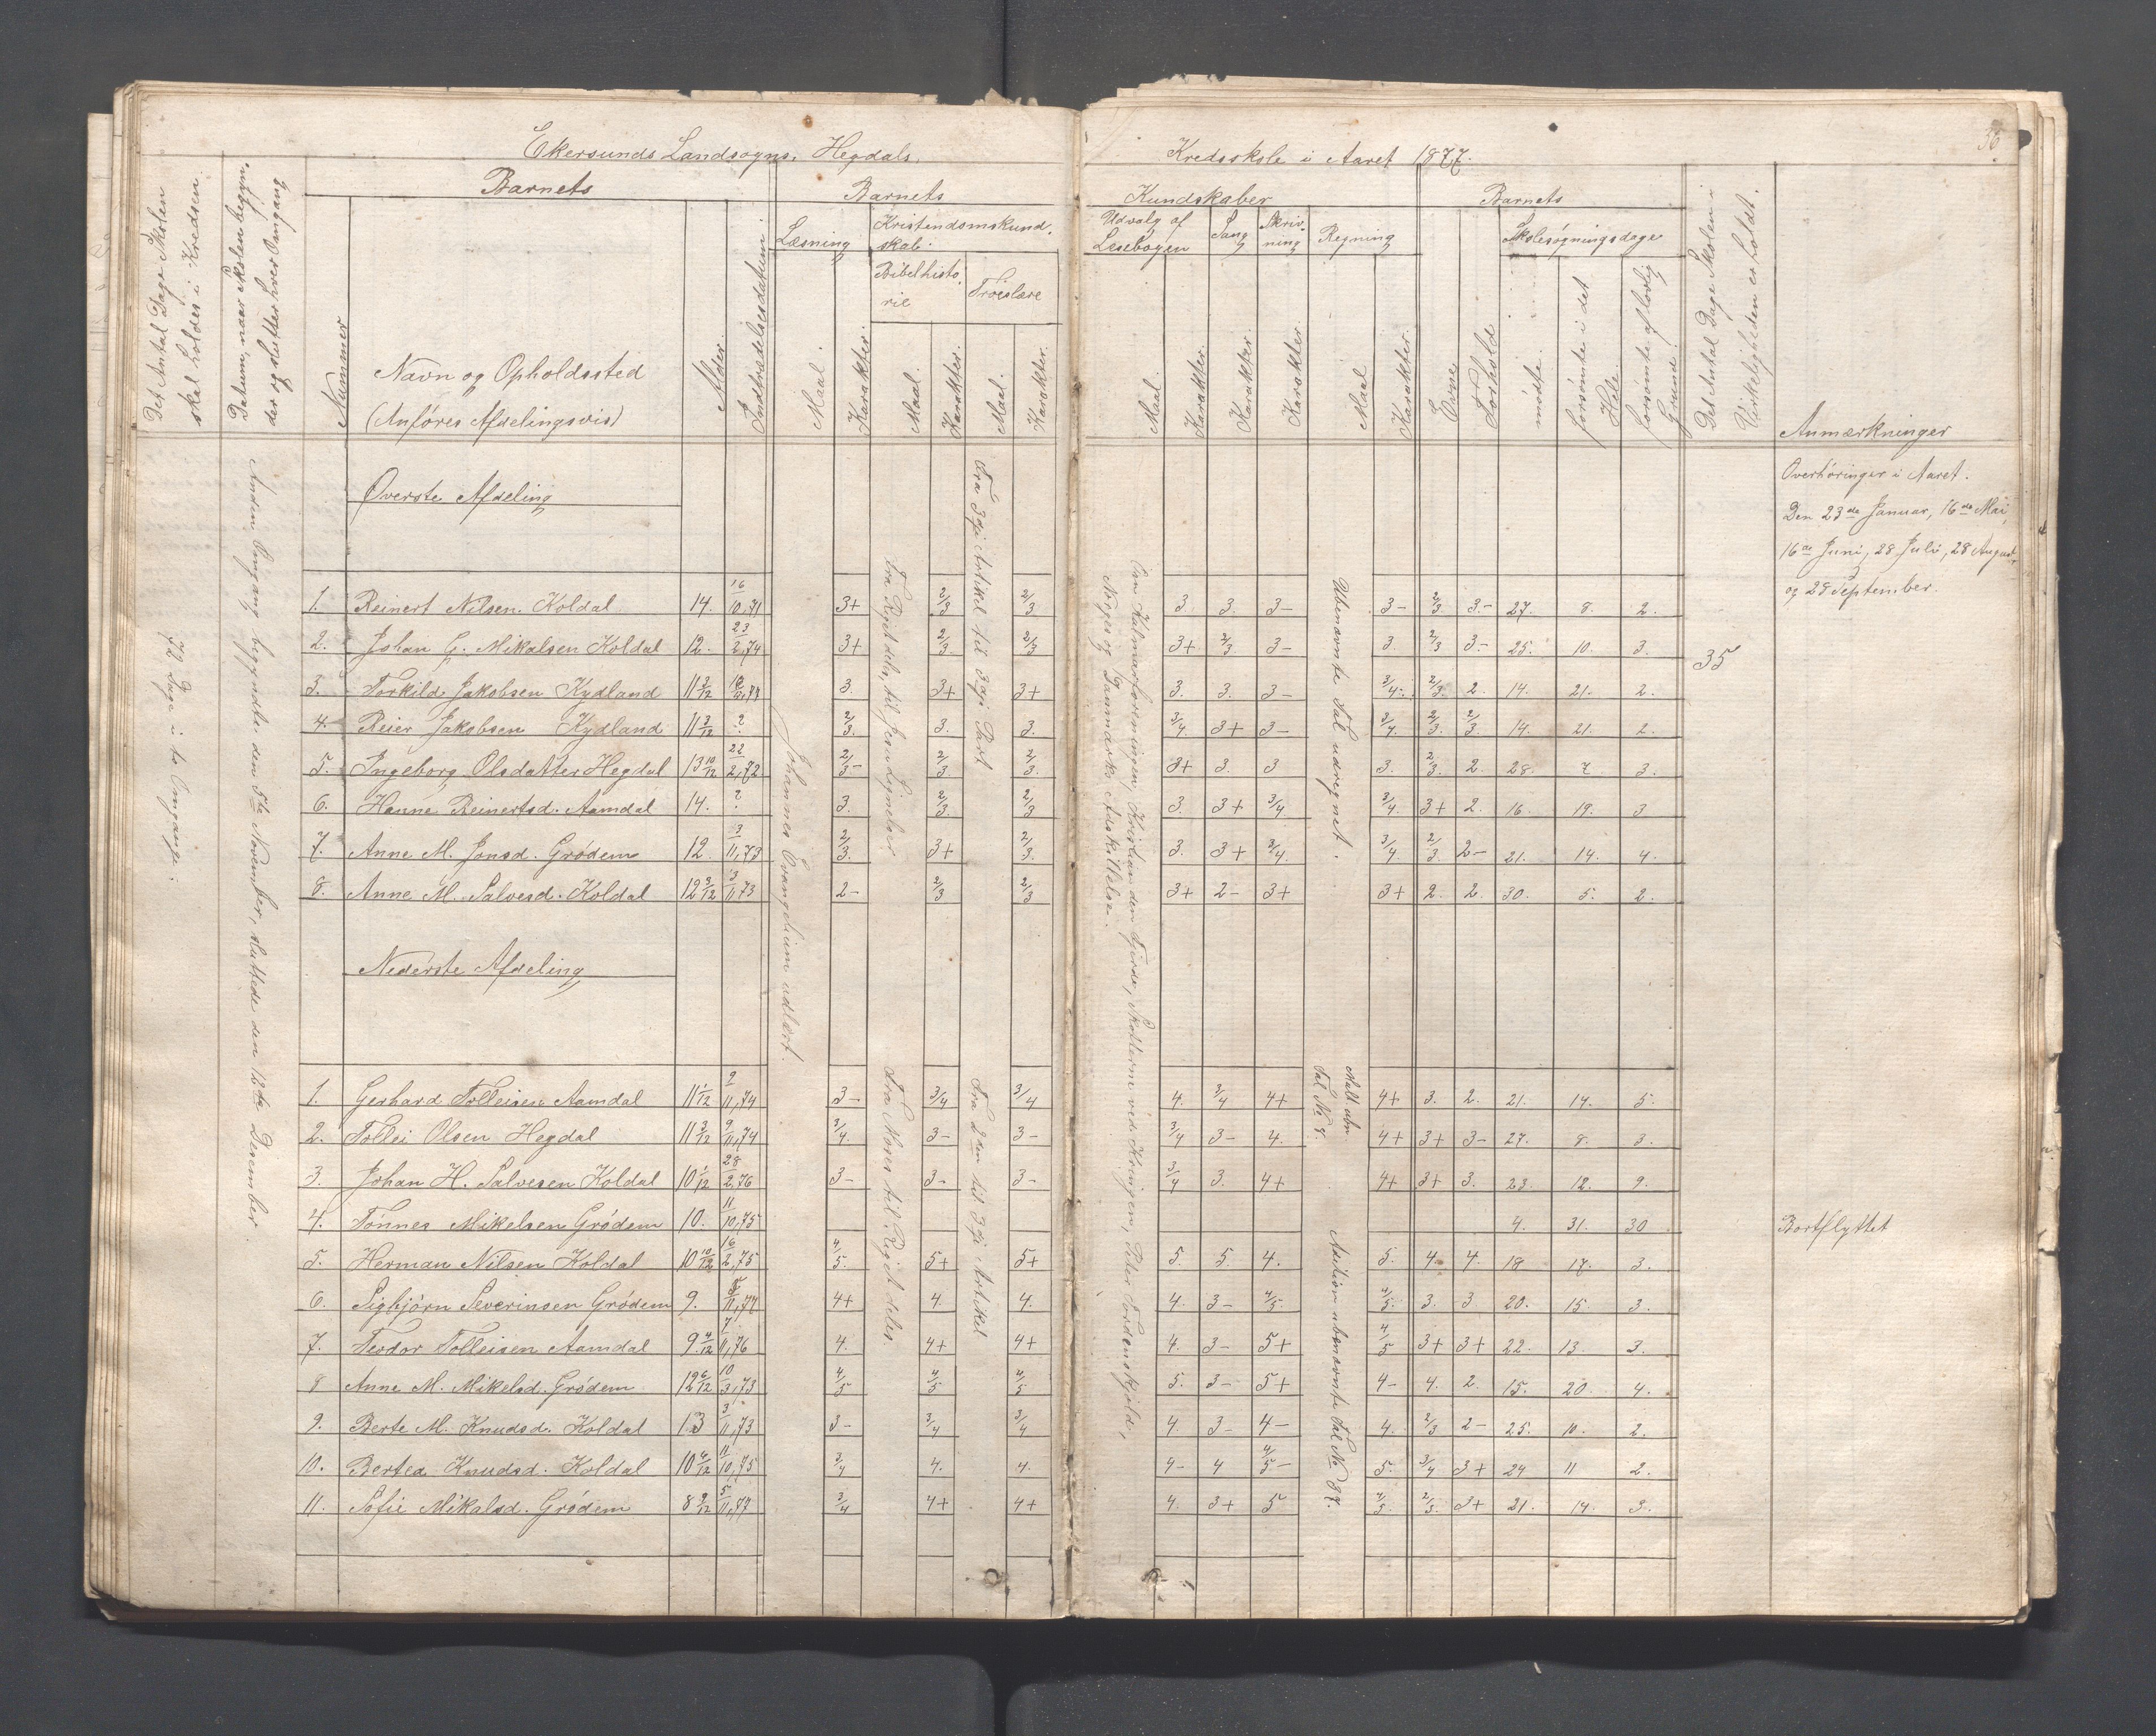 Ekersunds Landsogns, Hegdals
Kredsskole i Aaret 1877.
36
Det Antal Dage Skolen
skal holdes i Kredsen
Datum, naar Skolen begyn-
der og slutter hver Omgang
Barnets
Nummer
Navn og Opholdssted
(Anføres Afdelingsvis)
Alder
Indtrædelsesdatum
Barnets
Læsning
Maal.
Karakter.
Kristendomskund-
skab.
Bibelhisto-
rie
Maal.
Karakter.
Troeslære
Maal.
Karakter.
Kundskaber
Udvalg af
Læsebogen
Maal.
Karakter.
Sang
Karakter.
Skriv-
ning
Karakter.
Regning
Maal
Karakter.
Barnets
Evne
Forhold
Skolesøgningsdage
mødte.
forsømte i det
Hele.
forsømte af lovlig
Grund.
Det Antal Dage Skolen i
Virkeligheden er holdt.
Anmærkninger
72 Dage i to Omgange.
Anden Omgang begyndte den 5te November, sluttede den 12te December.
Øverste Afdeling
Johannes Evangelium udlært.
Fra Riget dele, til Jesu Lignelser
Fra 3die Artikel til 3die Part
Om Kalmarforeningen, Kristian den Fjerde, Skotterne ved Kringen, Peder Tordenskjold,
Norges og Danmarks Adskillelse.
Ubenævnte Tal udregnet.
35
Overhøringer i Aaret.
Den 23de Januar, 16de Mai,
16de Juni, 28 Juli, 28 August,
og 28 September.
1. Reinert Nilsen Koldal 14. 16/10,71 3+ 2/3 2/3 3. 3. 3- 3- 2/3. 3- 27. 8. 2.
2. Johan G. Mikalsen Koldal 12. 23/2,74 3+ 2/3. 2/3 3+ 2/3. 3- 3. 2/3 3- 25. 10. 3.
3. Torkild Jakobsen Kydland 11 3/12 3. 3+ 3+ 3. 3. 3- 3/4. 2/3. 2. 14. 21. 2.
4. Reier Jakobsen Kydland 11 3/12 ? 2/3. 3. 3. 3/4 3+ 3- 3/4. 2/3 2/3. 14. 21. 2.
5. Ingeborg Olsdatter Hegdal 13 10/12 22/2,72 2/3- 2/3. 2/3. 3+ 3. 3 3. 2/3. 2. 28. 7 3.
6. Hanne Reinertsd. Aamdal 14. ? 3. 2/3. 2/3. 3. 3+ 3/4 3/4. 3+ 2. 16. 19. 3
7. Anne M. Jonsd. Grødem 12. 3/11,73 2/3. 3+ 2/3. 3. 3+ 3/4. 3/4 2/3. 2- 21. 14. 4.
8. Anne M. Salvesd. Koldal 12 3/12 3/11,73 2- 2/3 2/3 3+ 2- 3+ 3+ 2. 2 30. 5. 2.
Nederste Afdeling
Fra Moses til Riget deles.
Fra 2den til 3die Artikel
Mult. ubn.
Tal No 4.
Addition ubenævnte Tal No 87.
1. Gerhard Tolleisen Aamdal 11 1/12 2/11,74 3- 3/4 3/4 4. 3/4 4+ 4+ 3. 2. 21. 14. 5.
2. Tollei Olsen Hegdal 11 3/12 9/11,74 3/4. 3- 3- 3/4 3- 4. 4+ 3+ 3- 27. 8. 3.
3. Johan H. Salvesen Koldal 10 1/12 28/2,76 3- 3- 3- 3/4 3. 4+ 4+ 3+ 3. 23. 12. 9.
4. Tønnes Mikelsen Grødem 10. 11/10,75 4. 31. 30 Bortflyttet
5. Herman Nilsen Koldal 10 10/12 16/2,75 4/5. 5+ 5+ 5. 5. 4. 5. 4. 4. 18 17. 3.
6. Sigbjørn Severinsen Grødem 9. 5/11,77 4+ 4. 4. 4. 3- 4/5. 4/5. 3. 3 20. 15. 3.
7. Teodor Tolleisen Aamdal 9 4/12 7/11,76 4. 4+ 4+ 4. 3- 5+ 4/5 3+ 3+ 22. 13. 3.
8 Anne M. Mikelsd. Grødem 12 6/12 10/3,73 4/5 4/5 4/5 5. 3- 5+ 4- 4. 2. 15. 20. 4.
9. Berte M. Knudsd. Koldal 13 3/11,73 3- 3/4 3/4 4. 3- 4- 4. 2/3 2- 25. 10. 2.
10. Bertea Knudsd. Koldal 10 4/12 11/10,75 3/4 4. 4. 4- 4 4/5- 5. 3/4 3+ 24 11 2.
11. Sofie Mikalsd. Grødem 8 9/12 5/11,77 3/4 4+ 4+ 4. 3+ 5 4/5. 2/3. 3+ 21. 14. 3.